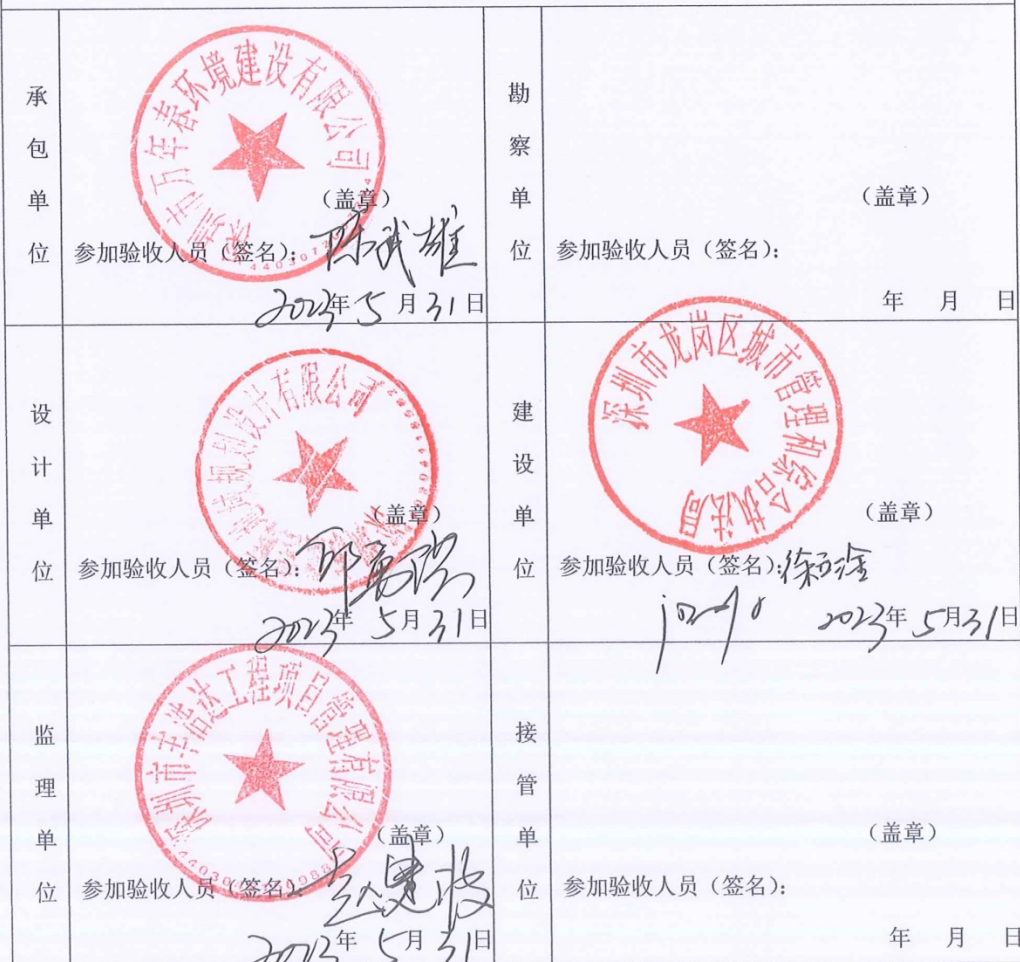 承包单位
深圳市万年春环境建设有限公司
（盖章）
参加验收人员（签名）：陈武雄
2023年 5 月 31 日
勘察单位
（盖章）
参加验收人员（签名）：
年 月 日
设计单位
规划设计有限公司
（盖章）
参加验收人员（签名）：
2023年 5月 31日
建设单位
深圳市龙岗区城市管理和综合执法局
（盖章）
参加验收人员（签名）：
2023年 5月31日
监理单位
深圳市丰浩达工程项目管理有限公司
（盖章）
参加验收人员（签名）：
2023年 5月 31日
接管单位
（盖章）
参加验收人员（签名）：
年 月 日